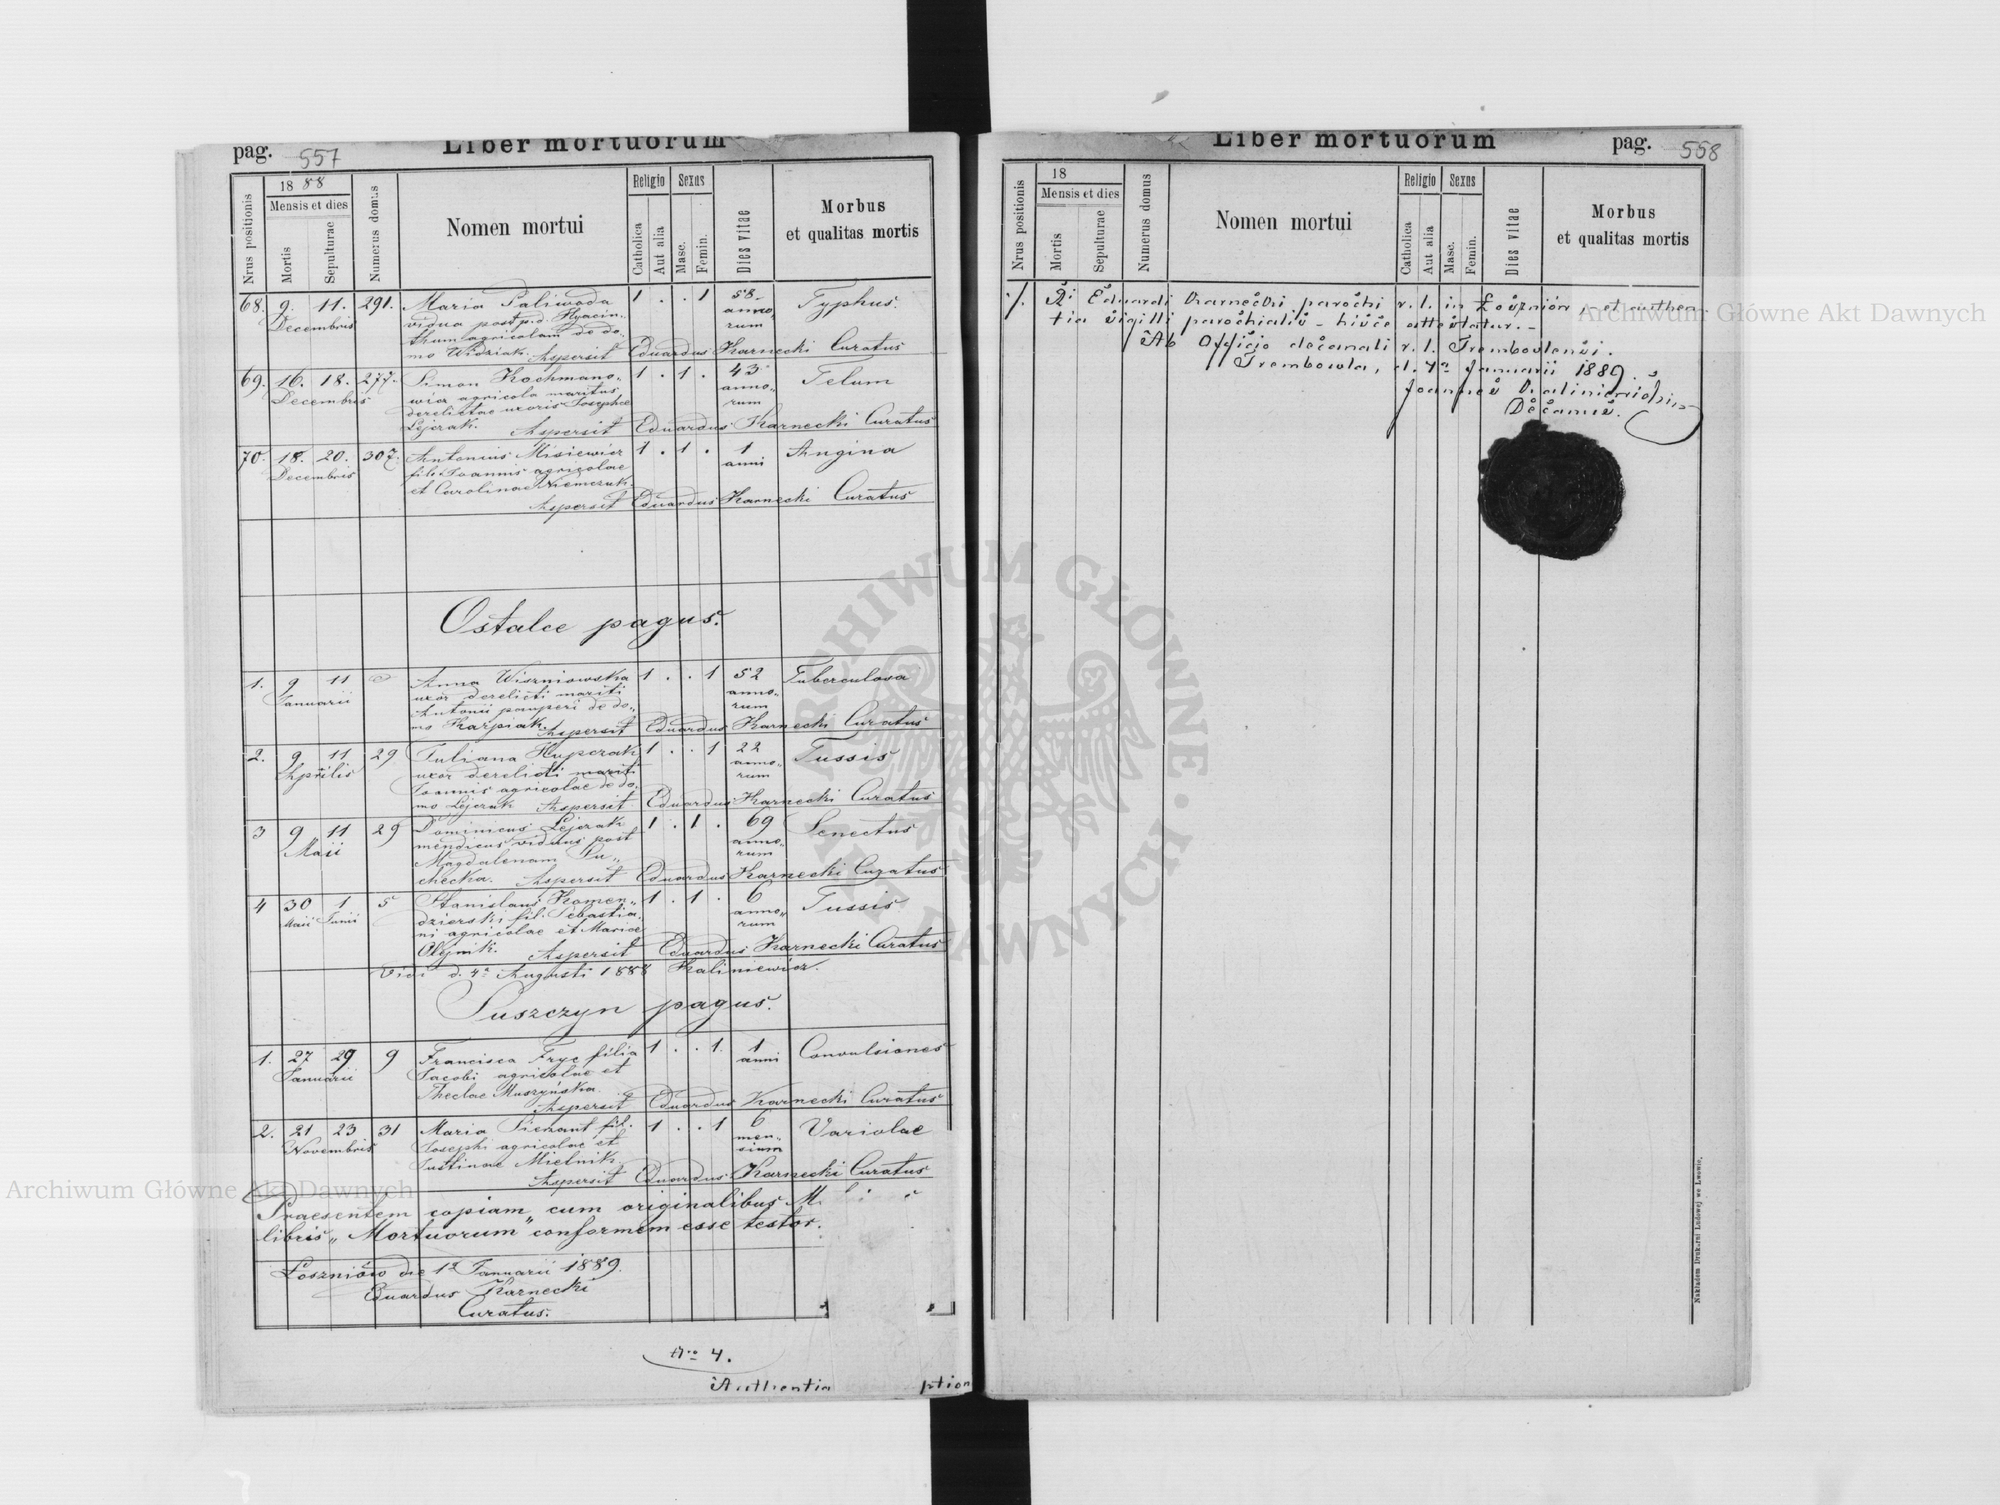 pag. 557 Liber mortuorum
Nrus positionis
1888
Mensis et dies
Mortis
Sepulturae
Numerus domus
Nomen mortui
Religio
Catholica
Aut alia
Sexus
Masc.
Femin.
Dies vitae
Morbus
et qualitas mortis
68. 9. 11. 291. Maria Paliwoda 1 . . 1 58 Typhus.
Decembris vidua post p.d. Hyacin- anno-
thum agricolam de do- rum
mo Widziak. Aspersit Eduardus Karnecki Curatus
69. 16. 18. 277. Simon Kochmano- 1 . 1 . 43 Telum
Decembris wicz agricola maritus anno-
derelictae uxoris Josephae rum
Lejczak. Aspersit Eduardus Karnecki Curatus
70. 18. 20. 307. Antonius Misiewicz 1 . 1 . 1 Angina
Decembris fil. Joannis agricolae anni
et Carolinae Niemczuk.
Aspersit Eduardus Karnecki Curatus
Ostalce pagus.
1. 9 11 Anna Wiszniowska 1 . . 1 52 Tuberculosa
Januarii uxor derelicti mariti anno-
Antonii pauperi de do- rum
mo Karpiak. Aspersit Eduardus Karnecki Curatus
2. 9 11 29 Juliana Hupczak 1 . . 1 22 Tussis
Aprilis uxor derelicti mariti anno-
Joannis agricolae de do- rum
mo Lejczak Aspersit Eduardus Karnecki Curatus
3 9 11 29 Dominicus Lejczak 1 . 1 . 69 Senectus
Maii mendicus viduus post anno-
Magdalenam Su- rum
checka. Aspersit Eduardus Karnecki Curatus
4 30 1 5 Stanislaus Komen- 1 . 1 . 6 Tussis
Maii Junii dzierski fil. Sebastia- anno-
ni agricolae et Mariae rum
Olejnik. Aspersit Eduardus Karnecki Curatus
Vidi d. 4a Augusti 1888 Kaliniewicz.
Suszczyn pagus.
1. 27 29 9 Francisca Fryc filia 1 . . 1. 1 Convulsiones
Januarii Jacobi agricolae et anni
Theclae Muszyńska.
Aspersit Eduardus Karnecki Curatus
2. 21 23 31 Maria Sienant fil. 1 . . 1 6 Variolae
Novembris Josephi agricolae et men-
Justinae Mielnik sium
Aspersit Eduardus Karnecki Curatus
Praesentem copiam cum originalibus M.
libris "Mortuorum" conformem esse testor.
Łoszniów die 1a Januarii 1889.
Eduardus Karnecki
Curatus.
Nro 4.
Authentia ption
Liber mortuorum pag. 558
Nrus positionis
18
Mensis et dies
Mortis
Sepulturae
Numerus domus
Nomen mortui
Religio
Catholica
Aut alia
Sexus
Masc.
Femin.
Dies vitae
Morbus
et qualitas mortis
Eduardi Karnecki parochi r. l. in Łoszniów, et authen
tia sigilli parochialis - hisce attestatur. -
Ab Officio decanali r. l. Trembovlensi.
Trembowla, d. 4a Januarii 1889.
Joannes Kaliniewicz
Decanus.
Nakładem Drukarni Ludowej we Lwowie.
Archiwum Główne Akt Dawnych
Archiwum Główne Akt Dawnych
ARCHIWUM GŁÓWNE AKT DAWNYCH